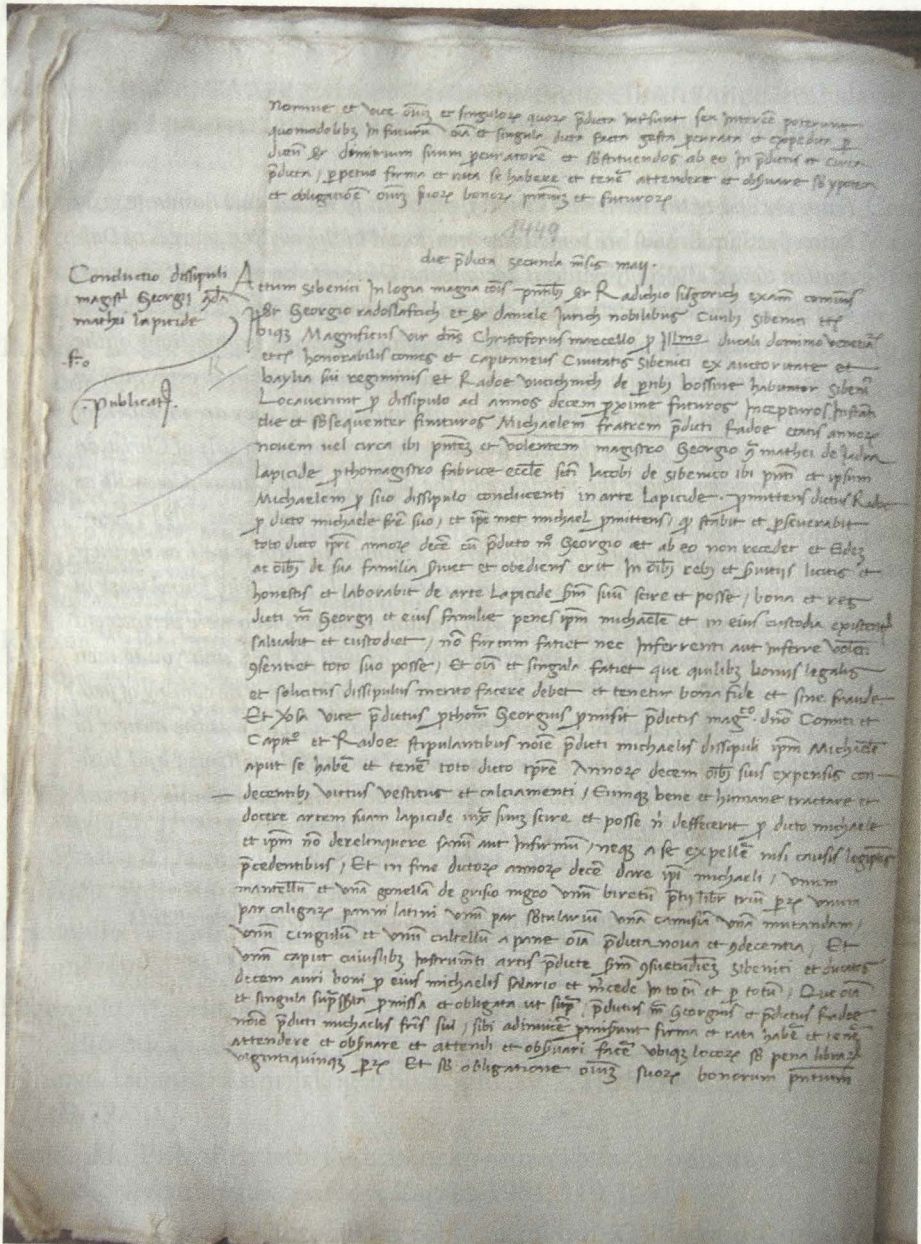 nomine et vice om̄iuȝ et singuloꝝ quoꝝ p̄dicta intersunt seu interēe poterunt
quomodolibꝫ in futuruȝ oīa et singula dicta facta gesta ꝓcurata et expedita ꝑ
dictū ser dimitrium suum ꝓcuratorē et sb̄stituendos ab eo in p̄dictis et circa
p̄dicta, ꝑpetuo firma et rata se habere et tenēr attendere et obs̄uare sb̄ ypoteca
et obligatiōe om̄iuȝ suoꝝ bonoꝝ p̄ntiuȝ et futuroꝝ
1449
die p̄dicta secunda mēsis maij.
Conductio dissipuli
magistri Georgii qdā
mathei lapicide
f.o
.publicatȝ.
Actum sibenici in logia magna cōis p̄ntibȝ ser Radichio sisgorich exam̄ comunis
ser Georgio radoslafcich et ser daniele Jurich nobilibus Ciuibȝ sibenici
ibiqȝ Magnificus vir dn̄s Christoforus marcello ꝓ Illmo ducali dominio venetiaꝝ
etcꝫ honorabilis comes et capitaneus Ciuitatis Sibenici ex auctoritate et
baylia sui regiminis et Radoe vucichnich de ꝑtibȝ bossine habitator sibenici
Locauerunt ꝓ dissipulo ad annos decem ꝓxime futuros incepturos
die et sb̄sequenter finituros Michaelem fratrem p̄dicti Radoe etatis annoꝝ
nouem uel circa ibi p̄ntēȝ et volentem magistro Georgio q̄ mathei de Jadra
lapicide ꝓthomagistro fabrice ecc̄le sc̄ti Jacobi de sibenico ibi p̄nti et ipsum
Michaelem ꝓ suo dissipulo conducenti in arte Lapicide. ꝓmittens dictus Radoe
ꝓ dicto michaele fr̄e suo, et ip̄e met michael ꝓmittens, qȝ stabit et ꝑseuerabit
toto dicto tp̄re annoꝝ decē cū p̄dicto mr̄o Georgio et ab eo non recedet et eidȝ
ac oībȝ de sua familia s̄uiet et obediens erit in oībȝ rebȝ et s̄uitijs licitis et
honestis et laborabit de arte Lapicide sm̄ suū scire et posse, bona et res
dicti mr̄i Georgii et eius familie penes ip̄m michaelē et in eius custodia existent
saluabit et custodiet, nō furtum fatiet nec inferrenti aut inferre volēti
ↄsentiet toto suo posse, Et oīa et singula fatiet que quilibꝫ bonus legalis
et solicitus dissipulus merito facere debet et tenetur bona fide et sine fraude.
Et ꝟsa vice p̄dictus ꝓthom̄r Georgius ꝓmisit p̄dictis mag.co dn̄o Comiti et
Capit.o et Radoe stipulantibus nōie p̄dicti michaelis dissipuli ip̄m Michaelē
aput se habē et tenē toto dicto tp̄re Annoꝝ decem oībȝ suis expensis con-
decentibȝ victus vestitus et calciamenti, Eumqȝ bene et humane tractare et
docere artem suam lapicide iuxᵃ suuȝ scire et posse n̄ deffecerit ꝓ dicto michaele
et ip̄m nō derelinquere sanū aut infirmū, neqȝ a se expellē nisi causis legiptīs
p̄cedentibus, Et in fine dictoꝝ annoꝝ decē dare ip̄i michaeli, unum
mantellū et unā gonellā de griso nigro unū biretū p̄tij libꝝ triū ꝑꝝ unum
par caligaꝝ panni latini unū par sb̄tulariū unā camisiā unā mutandam,
unū cingulū et unū cultellū a pane oīa p̄dicta noua et ↄdecentia, Et
unū caput cuiuslibꝫ instrumēti artis p̄dicte sm̄ ↄsuetudīeȝ sibenici et ducatos
decem auri boni ꝓ eius michaelis salario et m̄cede in totū et ꝑ totū, Que oīa
et singula supᵃsc̄pta ꝓmissa et obligata ut supᵃ, p̄dictus mr̄ Georgius et p̄dictus Radoe
nōie p̄dicti michaelis fr̄is sui, sibi adinuicē ꝓmiserunt firma et rata habē et tenē
attendere et obs̄uare et attendi et obs̄uari facē ubiqȝ locoꝝ sb̄ pena libraꝝ
vigintiquinqȝ ꝑꝝ. Et sb̄ obligatione om̄iuȝ suoꝝ bonorum p̄ntium